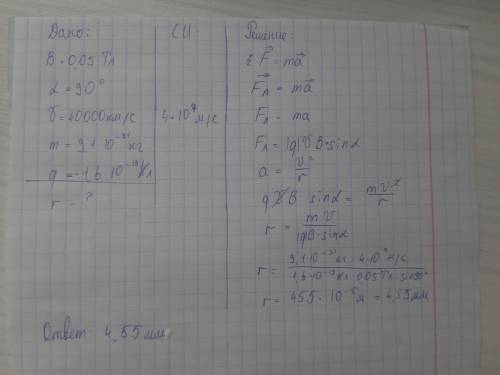 Дано:
B = 0.05 Тл
α = 90°
υ = 40000 км/с
m = 9,1·10⁻³¹ кг
q = -1,6·10⁻¹⁹ Кл
r - ?
СИ
4·10⁷ м/с
Решение:
F⃗ = ma⃗
F⃗л = ma⃗
Fл = ma
Fл = |q|υB·sinα
a = υ²/r
qυB sinα = mυ²/r
r = mυ/|q|B·sinα
r = 9,1·10⁻³¹ кг · 4·10⁷ м/с / 1,6·10⁻¹⁹ Кл · 0.05 Тл · sin90°
r = 455 · 10⁻⁵ м = 4,55 мм
Ответ: 4,55 мм